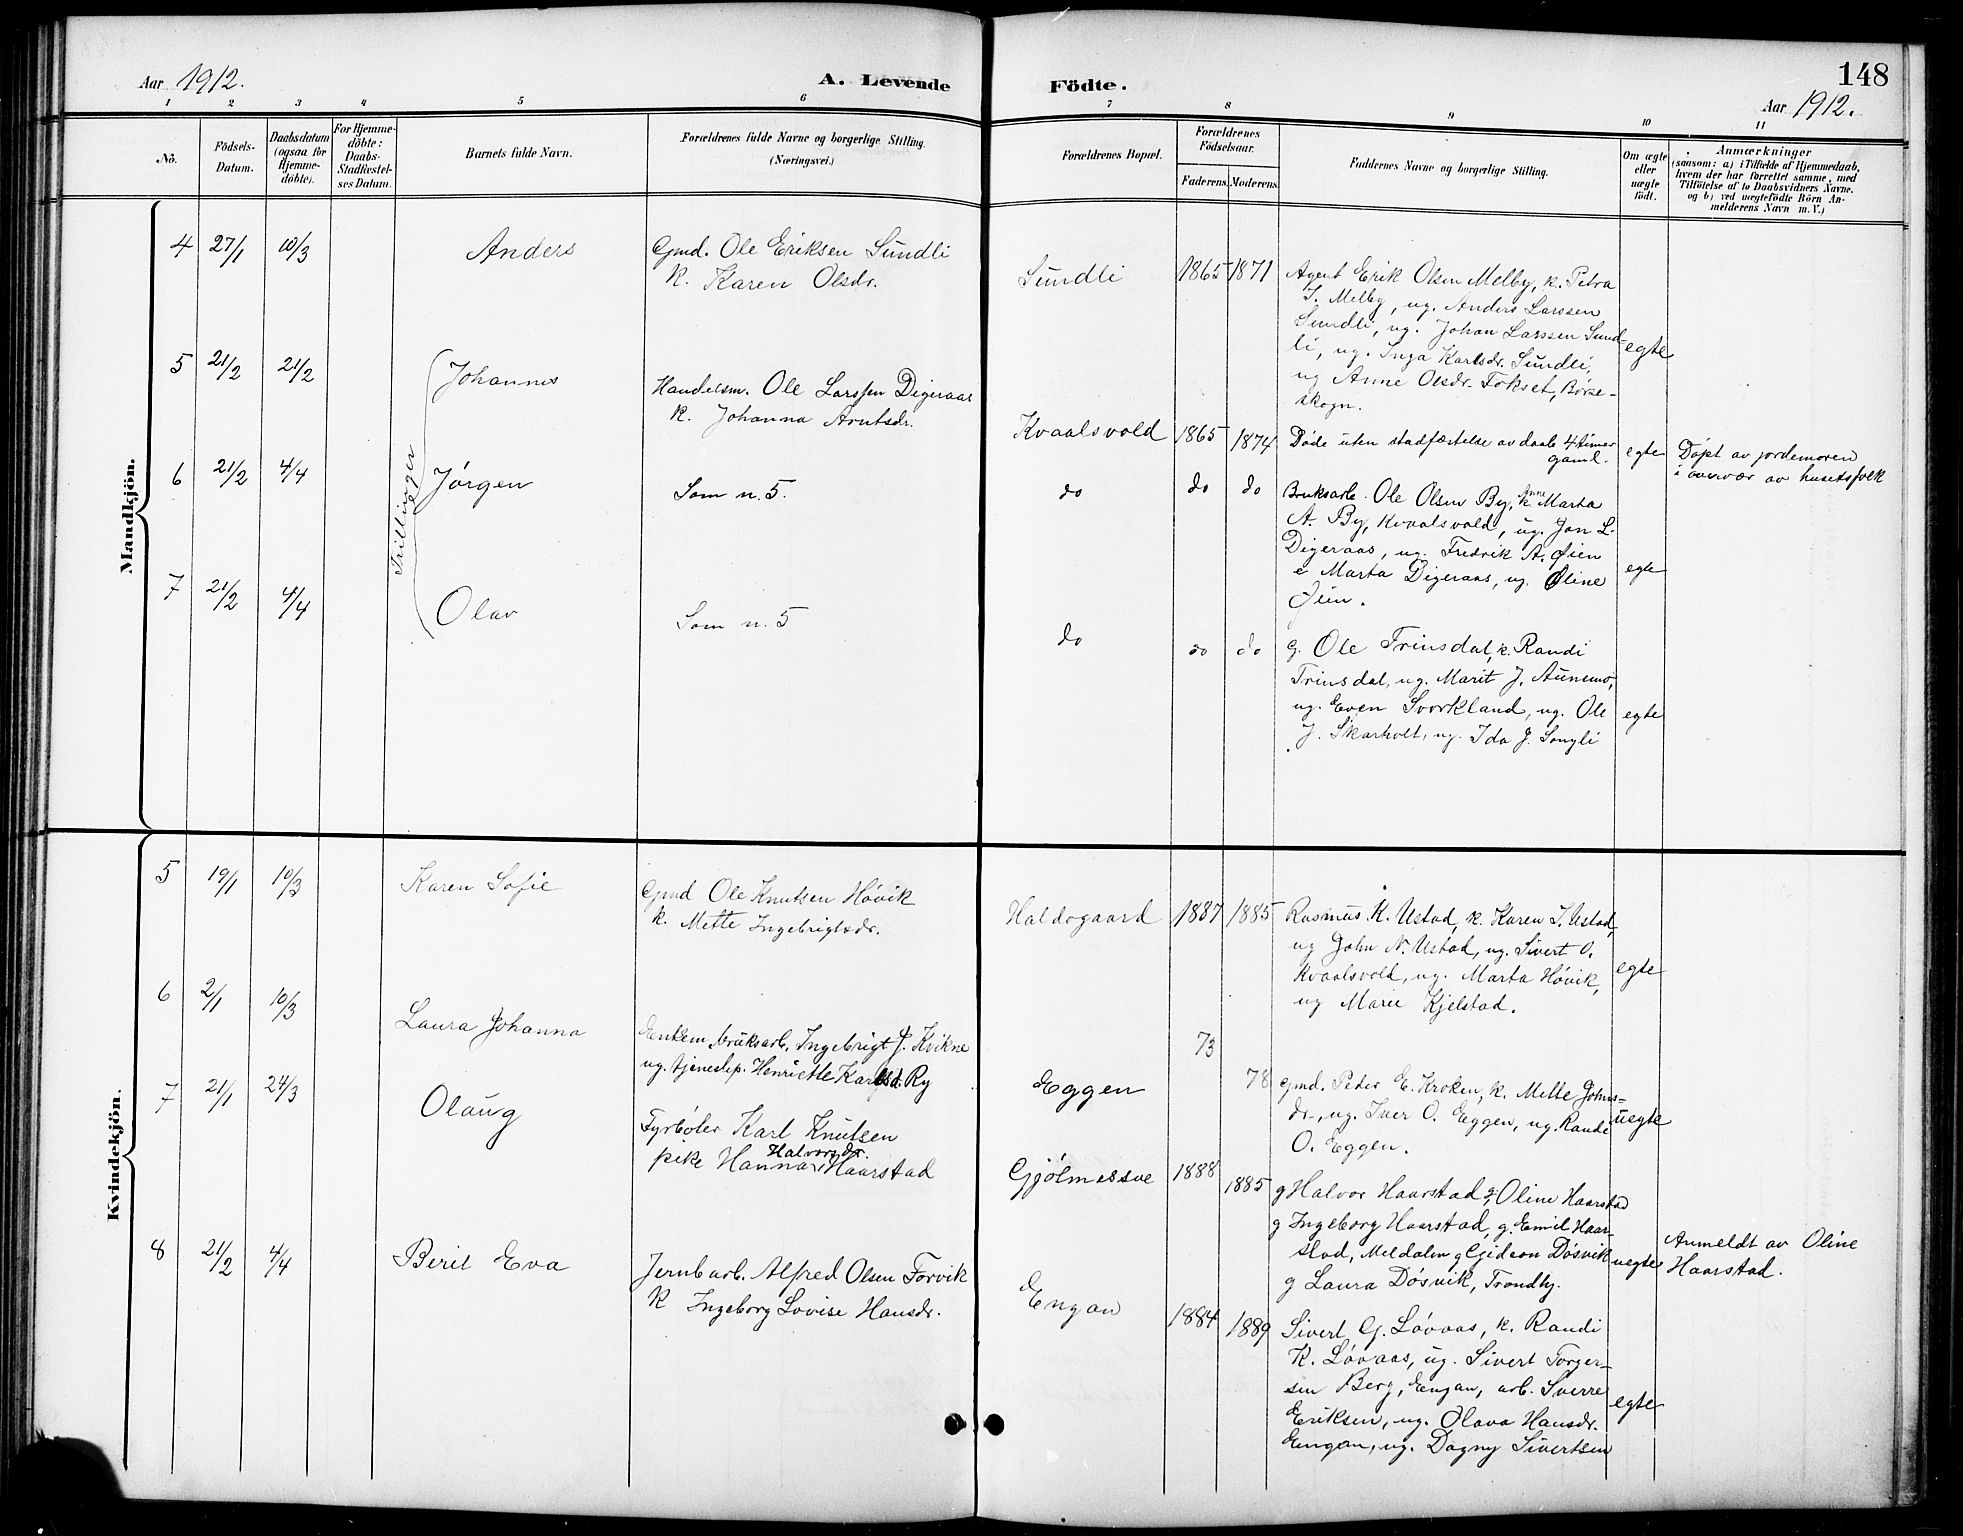 Aar 1912.
A. Levende
Födte.
148
Aar 1912.
1 2 3 4 5 6 7 8 9 10 11
No.
Födsels-
Datum.
Daabsdatum
(ogsaa for
Hjemme-
döbte).
For Hjemme-
döbte:
Daabs-
Stadfæstel-
ses Datum.
Barnets fulde Navn.
Forældrenes fulde Navne og borgerlige Stilling.
(Næringsvei.)
Forældrenes Bopæl.
Forældrenes
Födselsaar.
Faderens.
Moderens.
Faddernes Navne og borgerlige Stilling.
Om ægte
eller
uægte
födt.
Anmærkninger
(saasom: a) i Tilfælde af Hjemmedaab,
hvem der har forrettet samme, med
Tilföielse af to Daabsvidners Navne.
og b) ved uægtefödte Börn An-
melderens Navn m. V.)
Mandkjön.
4 27/1 10/3 Anders
Gmd. Ole Eriksen Sundli
k. Karen Olsdr.
Sundli 1865 1871
Agent Erik Olsen Melby, k. Petra
J. Melby, ug. Anders Larssen
Sundli, ug. Johan Larssen Sund-
li, ug. Inga Karlsdr. Sundli,
ug Anne Olsdr. Fokset, Børse-
skogn.
egte
Trillinger
5 21/2 21/2 Johannes
Handelsm. Ole Larssen Digeraas
k. Johanna Arntsdr.
Kvaalsvold 1865 1874
Døde uten stadfæstelse av daab 4 timer
gaml.
egte
Døpt av jordemoren
i overvær av husetsfolk
6 21/2 4/4 Jørgen
Som n. 5.
do do do
Bruksarb. Ole Olsen By, k. Anne Marta
A. By, Kvaalsvold, ug. Jon L.
Digeraas, ug. Fredrik A. Øien
e Marta Digeraas, ug. Oline
Øien.
egte
7 21/2 4/4 Olav
Som n. 5
do do do
g. Ole Trinsdal, k. Randi
Trinsdal, ug. Marit J. Aunemo,
ug. Even Svorkland, ug. Ole
J. Skarholt, ug. Ida J. Songli
egte
Kvindekjön.
5 19/1 10/3 Karen Sofie
Gmd Ole Knutsen Høvik
k. Mette Ingebrigtsdr.
Haldogaard 1887 1885
Rasmus K. Ustad, k. Karen I. Ustad,
ug John N. Ustad, ug. Sivert O.
Kvaalsvold, ug. Marta Høvik,
ug Marie Kjelstad.
egte
6 2/1 10/3 Laura Johanna
Enkem. bruksarb. Ingebrigt J. Kvikne
ug. tjenestep. Henriette Karlsd. Ry
Eggen 73 78
gmd. Peter E. Kroken, k. Mette Johns-
dr., ug. Iver O. Eggen, ug. Randi
O. Eggen.
uegte
7 21/1 24/3 Olaug
Fyrbøter Karl Knutsen
pike Hanna Halvorsdr. Haarstad
Gjølmessve 1888 1885
g Halvor Haarstad, g. Oline Haarstad
g Ingeborg Haarstad, g. Emil Haar-
stad, Meldalen g Gideon Døsvik
g Laura Døsvik, Trondhj.
uegte
Anmeldt av Oline
Haarstad.
8 21/2 4/4 Berit Eva
Jernbarb. Alfred Olsen Forvik
k Ingeborg Lovise Hansdr.
Engan 1884 1889
Sivert G. Løvaas, k. Randi
K. Løvaas, ug. Sivert Torger-
sen Berg, Engan, arb. Sverre
Eriksen, ug. Olava Hansdr.
Engan, ug. Dagny Sivertsen
egte